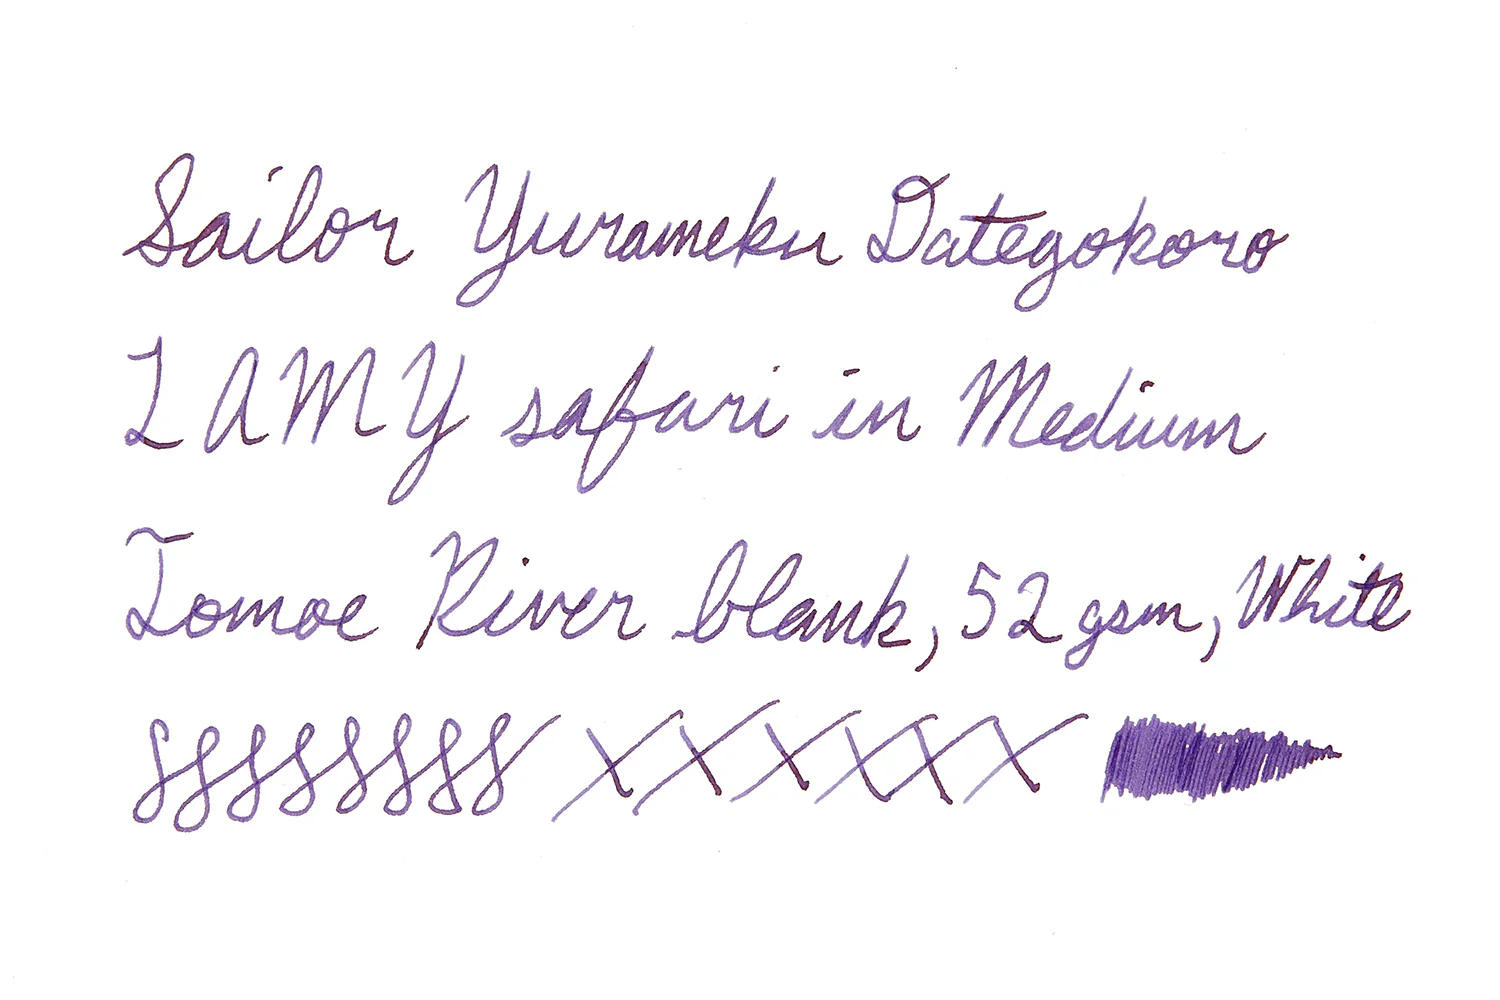 Sailor Yurameku Dategokoro
LAMY safari in Medium
Tomoe River blank, 52 gsm, White
xxxxxx